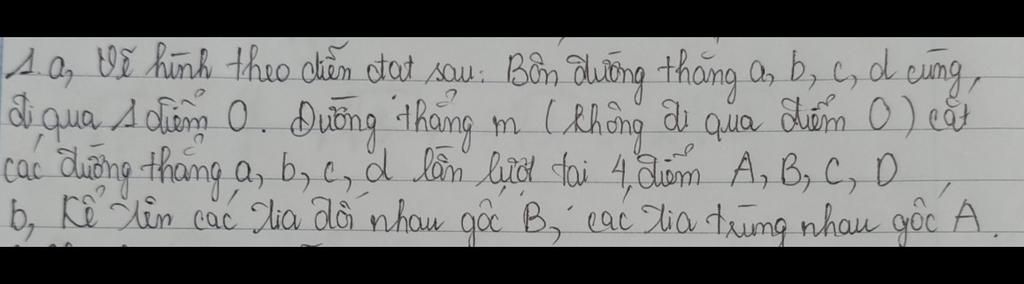 1.a, Vẽ hình theo diễn đạt sau: Bốn đường thẳng a, b, c, d cùng
đi qua 1 điểm O. Đường thẳng m (không đi qua điểm O) cắt
các đường thẳng a, b, c, d lần lượt tại 4 điểm A, B, C, D
b, Kể tên các tia đối nhau gốc B, các tia trùng nhau gốc A.